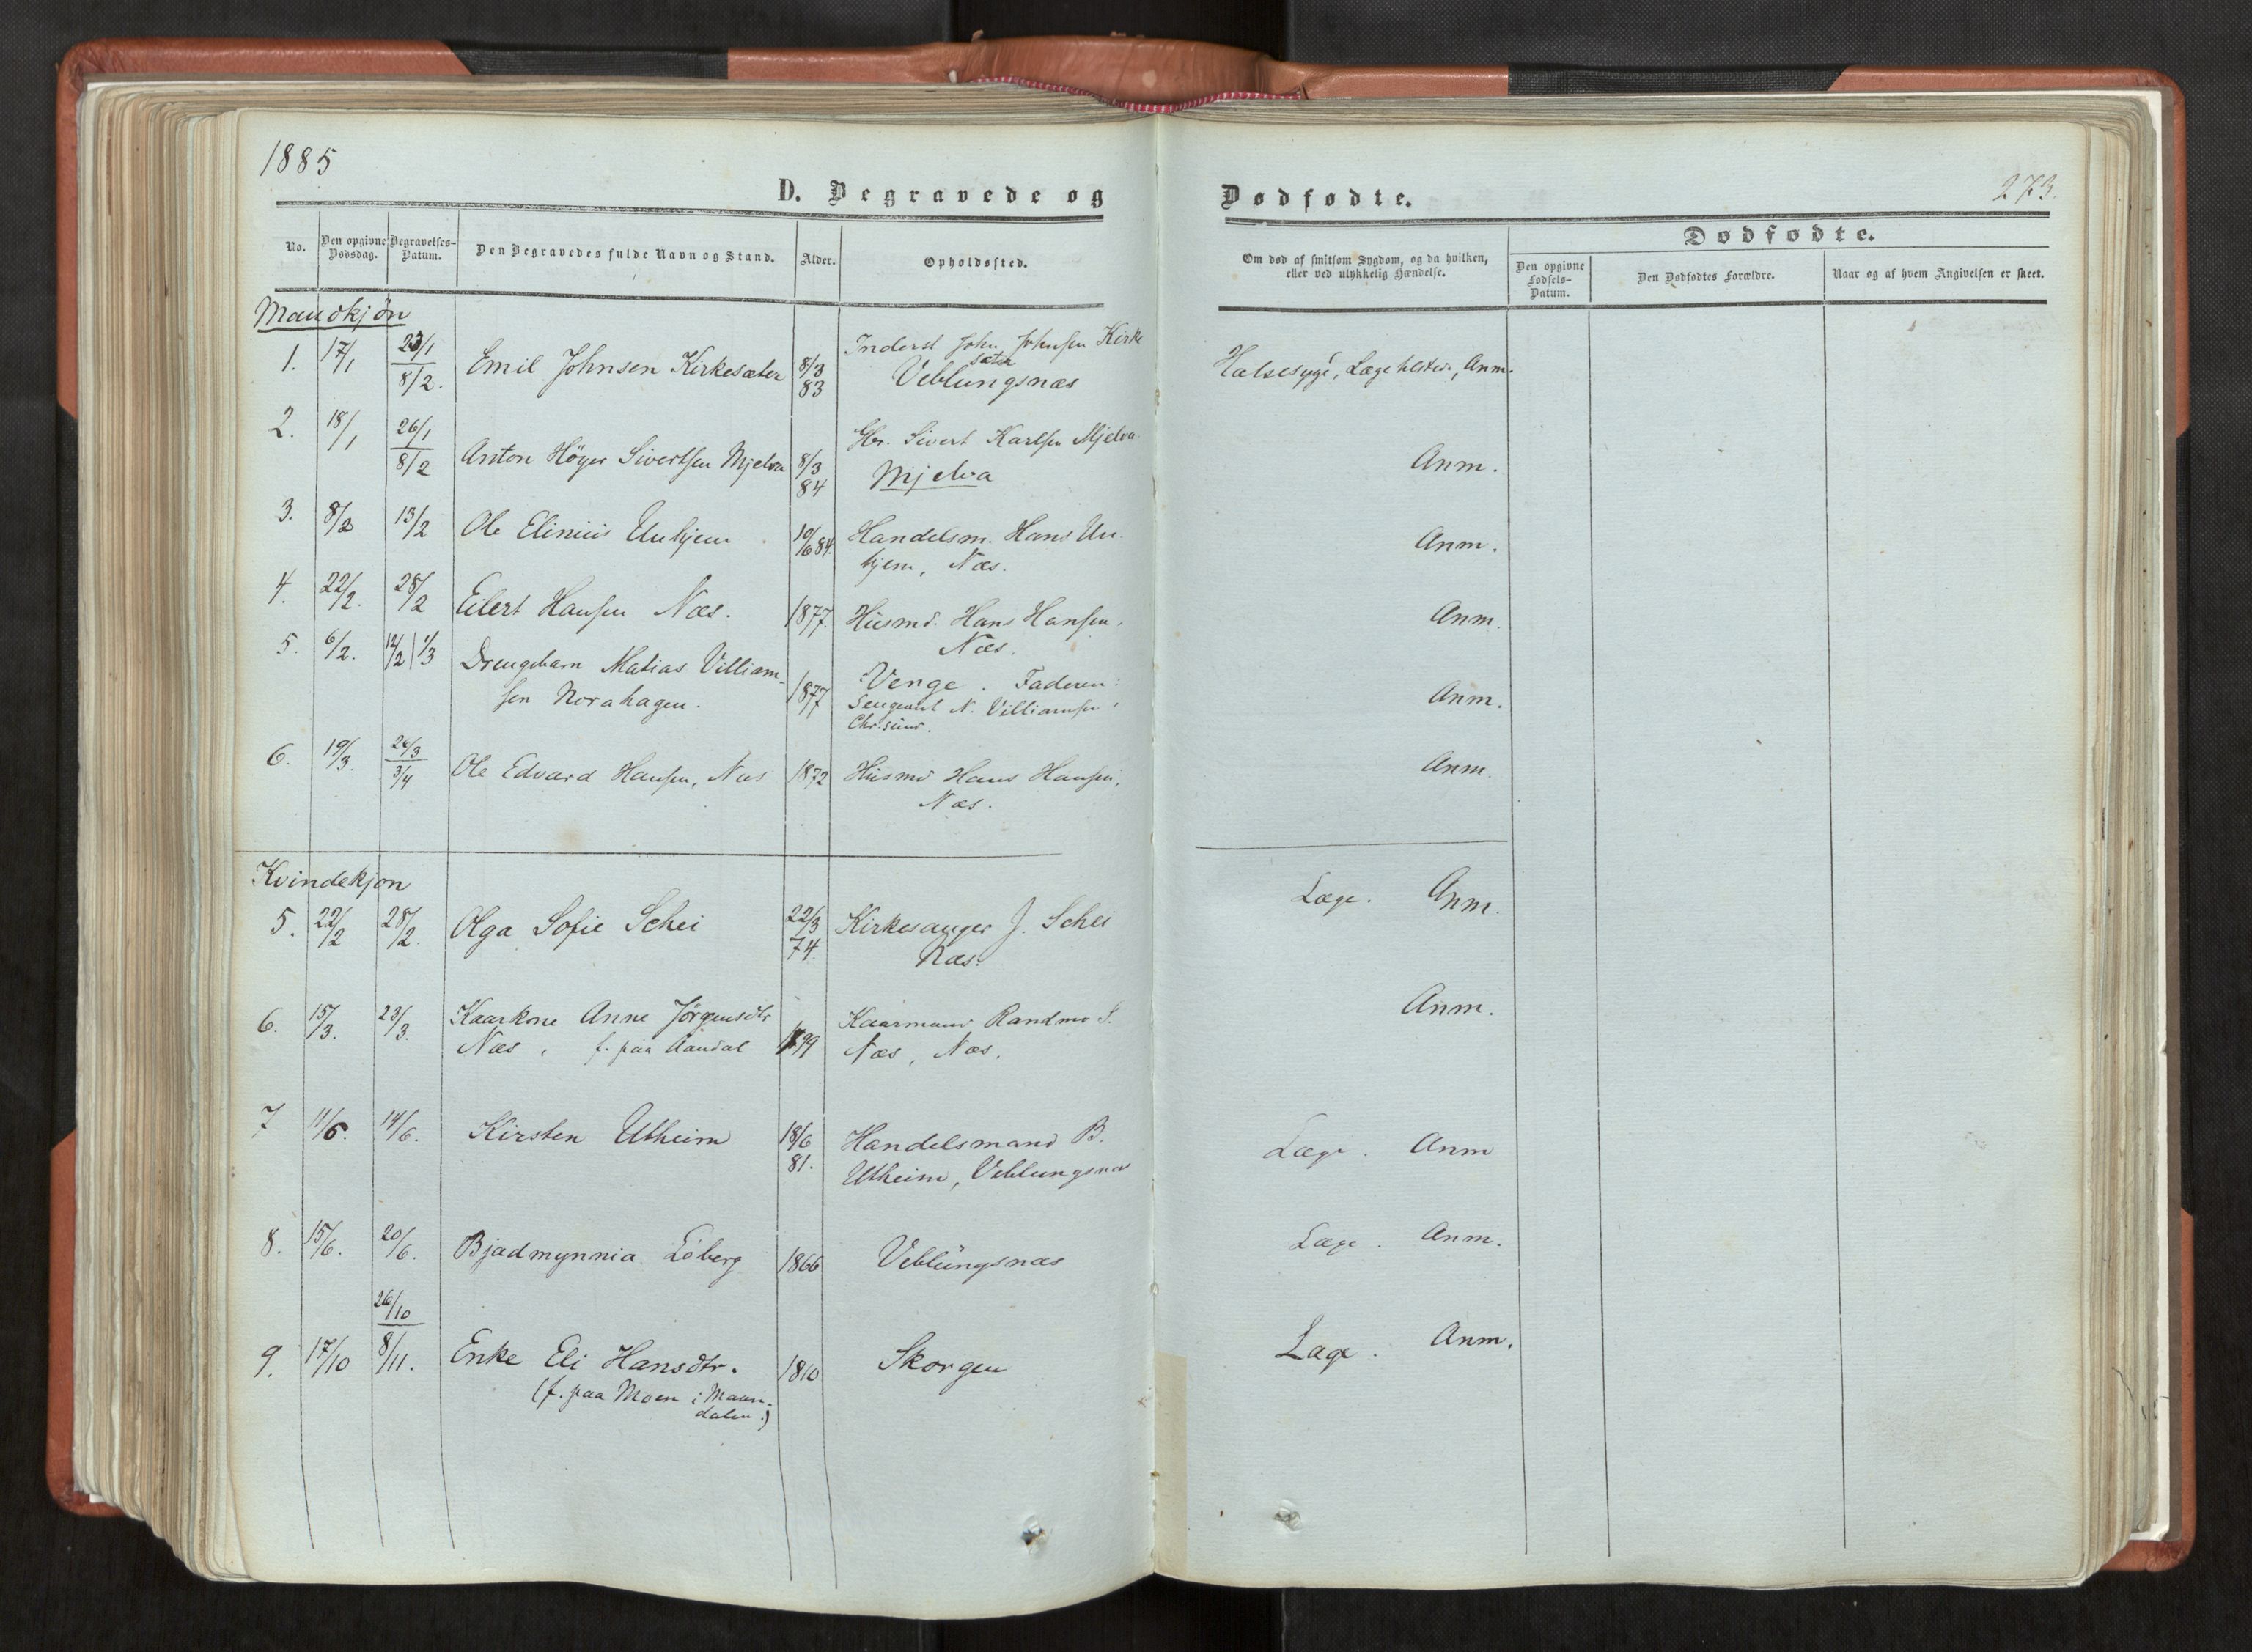 1885
D. Begravede og
Dødfødte.
273.
No.
Den opgivne Dødsdag.
Begravelses-Datum.
Den Begravedes fulde Navn og Stand.
Alder.
Opholdssted.
Om død af smitsom Sygdom, og da hvilken,
eller ved ulykkelig Hændelse.
Dødfødte.
Den opgivne Fødsels-Datum.
Den Dødfødtes Forældre.
Naar og af hvem Angivelsen er skeet.
Mandkjøn
1. 17/1 23/1 8/2. Emil Johnsen Kirkesæter 8/3 83 Inderst John Johnsen Kirke
sæter
Veblungsnæs
Halsesyge, Læge, Anm.
2. 18/1 26/1 8/2 Anton Höyer Sivertsen Mjelva 8/3 84 Gbr. Sivert Karlsen Mjelva
Mjelva
Anm.
3. 8/2 13/2 Ole Elinius Unhjem 10/6 84. Handelsm. Hans Un-
hjem, Næs.
Anm.
4. 22/2. 28/2 Eilert Hansen Næs. 1877. Husmd. Hans Hansen,
Næs.
Anm.
5. 6/2. 12/2 | 1/3 Drengebarn Matias Villiam-
sen Norahagen. 1877 Venge. Faderen:
Sergeant N. Villiamsen i
Chr.sund.
Anm.
6. 19/3. 26/3 3/4 Ole Edvard Hansen, Næs 1872 Husmd Hans Hansen,
Næs.
Anm.
Kvindekjøn
5. 22/2 28/2. Olga Sofie Schei 22/3 74. Kirkesanger J. Schei
Næs.
Læge. Anm.
6. 15/3. 23/3. Kaarkone Anne Jørgensdtr
Næs, f. paa Aandal 1799 Kaarmand Randmo S.
Næs, Næs.
Anm.
7 11/6. 14/6. Kirsten Utheim 18/6 81. Handelsmand B.
Utheim, Veblungsnæs
Læge. Anm
8. 15/6. 20/6. Bjadmynnia Löberg 1866 Veblungsnæs
Læge. Anm.
9. 17/10 26/10 8/11. Enke Eli Hansdtr. 1810 Skorgen
(f. paa Moen i Maan-
dalen.)
Læge. Anm.